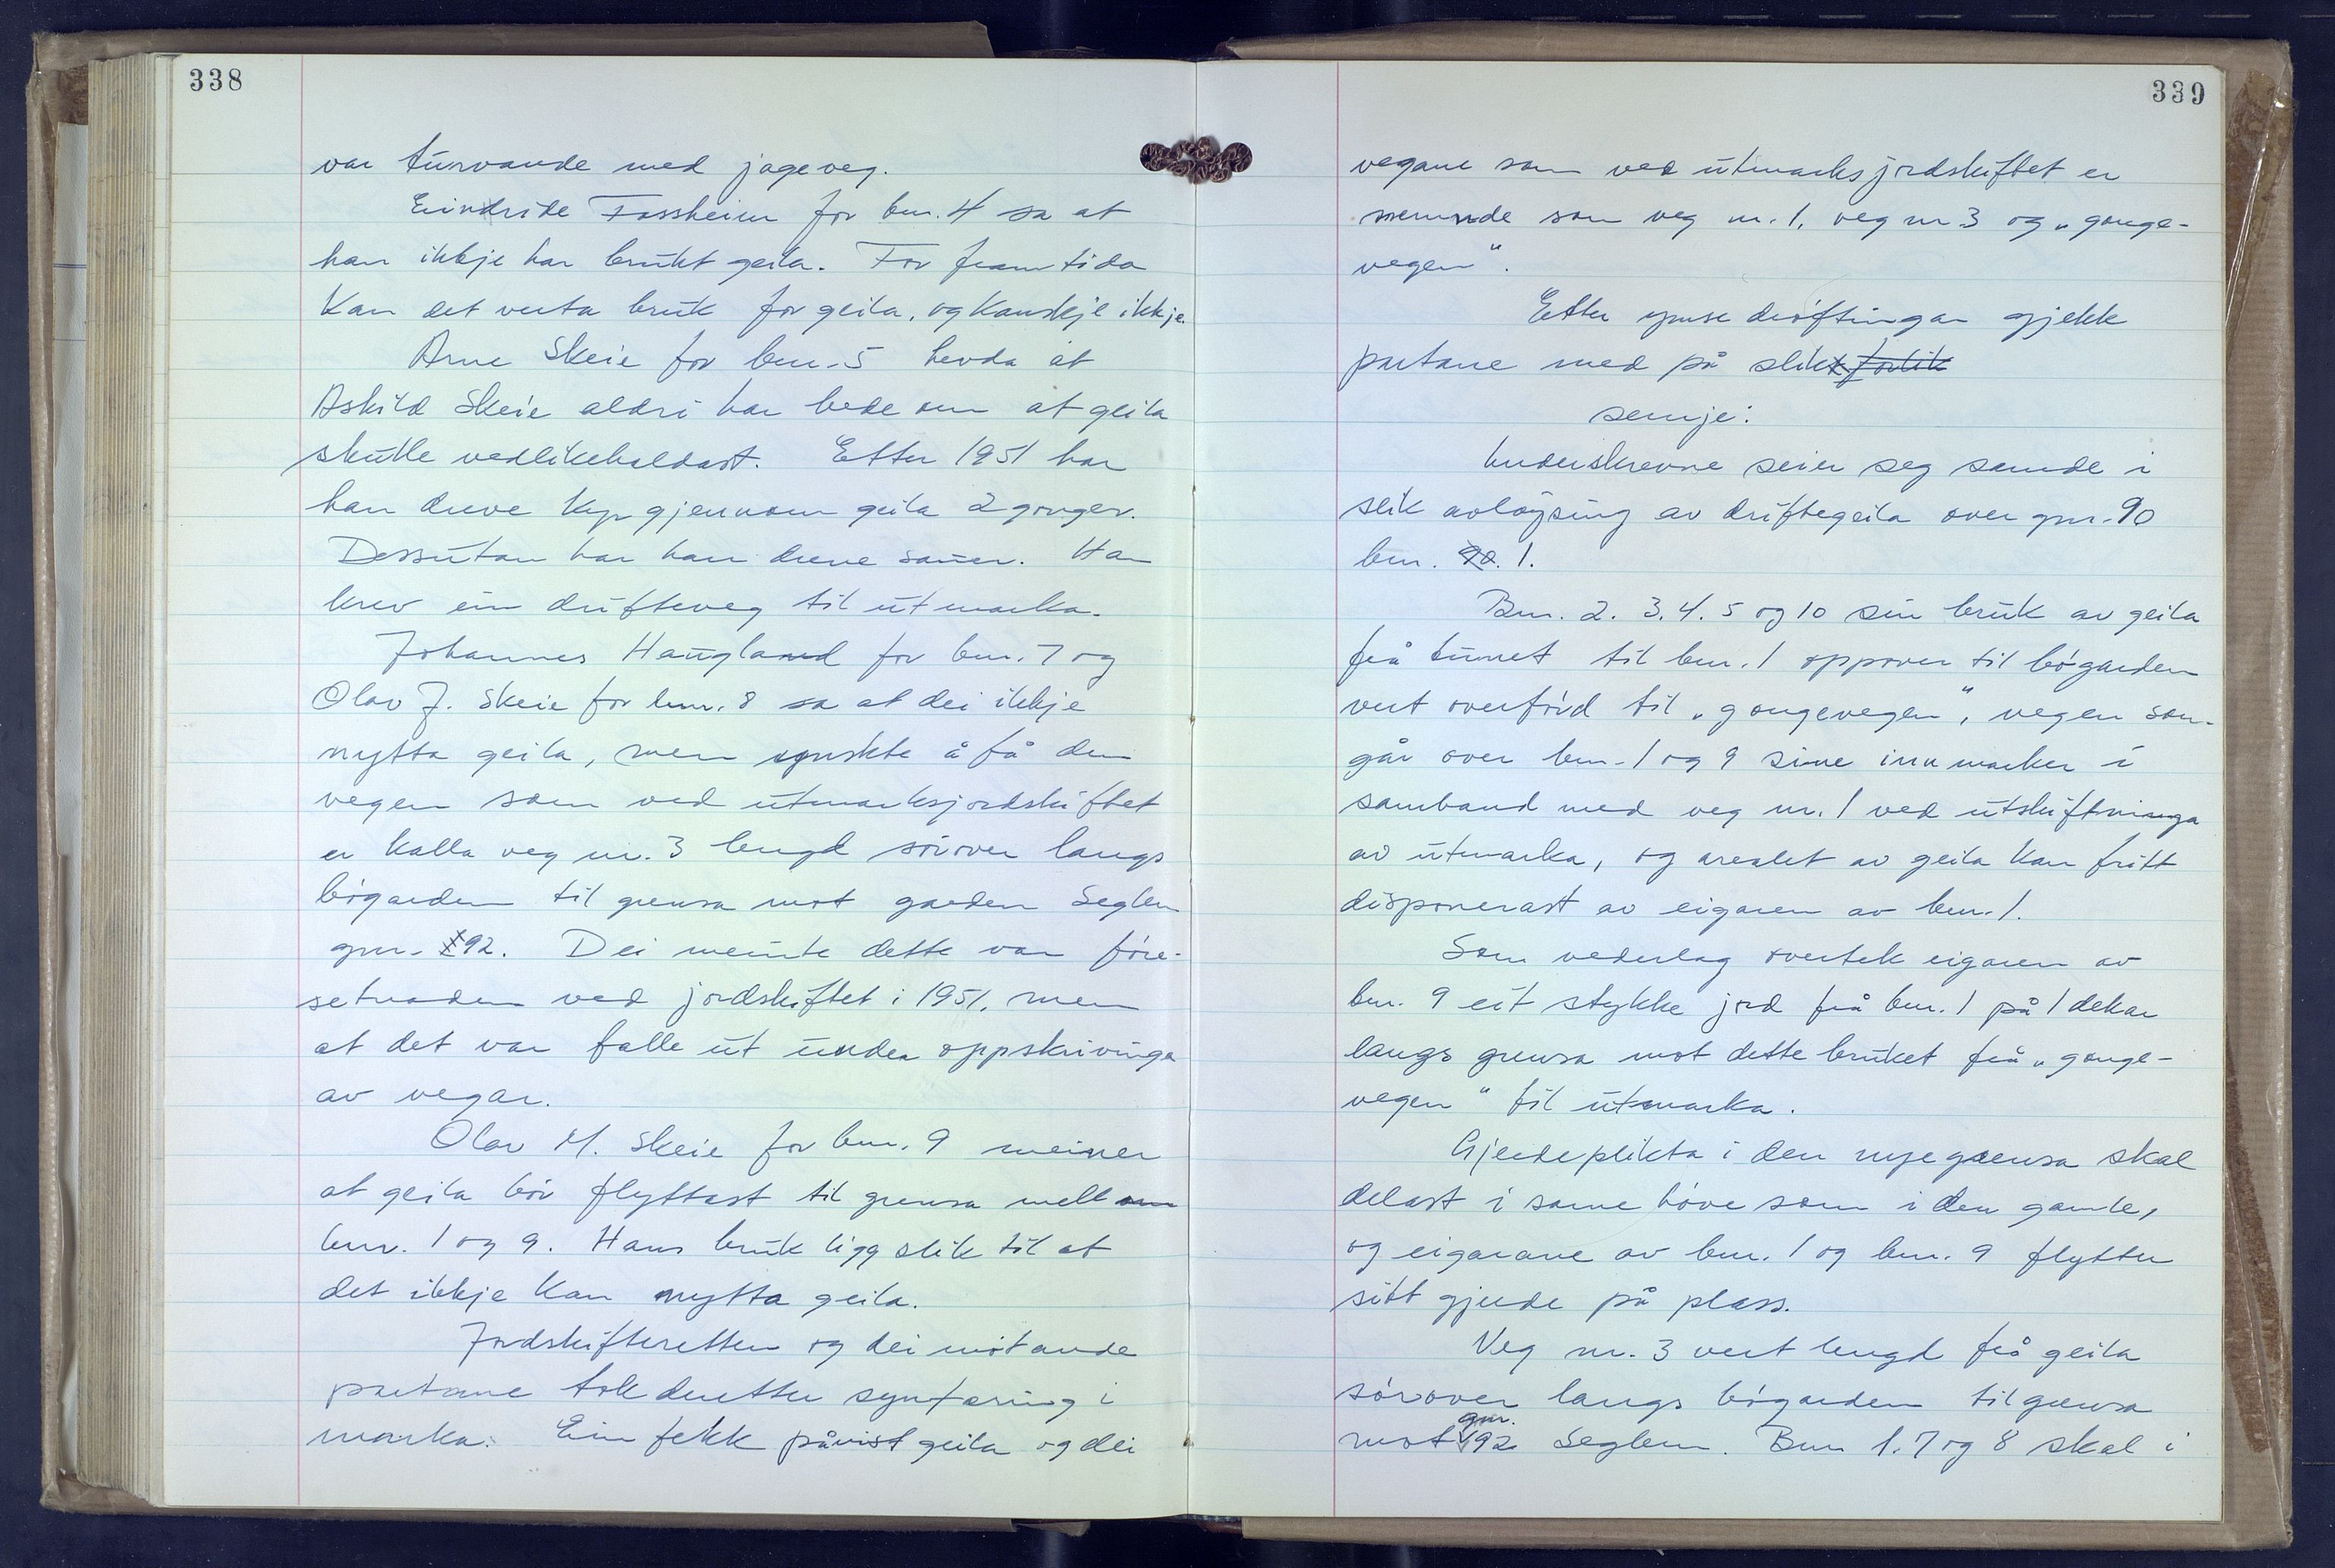 338
var turvande med jageveg.
Eindride Fassheim for bnr. 4 sa at
han ikkje har brukt geila. For framtida
kan det verta bruk for geila, og kanskje ikkje.
Arne Skeie for bnr. 5 hevda at
Askild Skeie aldri har bede om at geila
skulle vedlikehaldast. Etter 1951 har
han dreve kyr gjennom geila 2 gonger.
Dessutan har han dreve sauer. Han
krev ein drifteveg til utmarka.
Johannes Haugland for bnr. 7 og
Olav J. Skeie for bnr. 8 sa at dei ikkje
nytta geila, men ynskte å få den
vegen som ved utmarksjordskiftet
er kalla veg nr. 3 lengd sörover langs
bögarden til grensa mot garden Seglem
gnr. 92. Dei meinte dette var före-
setnaden ved jordskiftet i 1951, men
at det var falle ut under oppskrivinga
av vegar.
Olav M. Skeie for bnr. 9 meiner
at geila bör flyttast til grensa mellom
bnr. 1 og 9. Hans bruk ligg slik til at
det ikkje kan nytta geila.
Jordskifteretten og dei mötande
partane tok deretter synfaring i
marka. Ein fekk påvist geila og dei
339
vegane som ved utmarksjordskiftet er
nemnde som veg nr. 1, veg nr 3 og „gonge-
vegen“.
Etter ymse dröftingar gjekk
partane med på slikt forlik
semje:
Underskrevne seier seg samde i
slik avlöysing av driftegeila over gnr. 90
bnr. 90. 1.
Bnr. 2. 3. 4. 5 og 10 sin bruk av geila
frå tunet til bnr. 1 oppover til bögarden
vert overförd til „gongevegen“, vegen som
går over bnr. 1 og 9 sine innmarker i
samband med veg nr. 1 ved utskiftninga
av utmarka, og arealet av geila kan fritt
disponerast av eigaren av bnr. 1.
Som vederlag overtek eigaren av
bnr. 9 eit stykke jord frå bnr. 1 på 1 dekar
langs grensa mot dette bruket frå „gonge-
vegen“ til utmarka.
Gjerdeplikta i den nye grensa skal
delast i same höve som i den gamle,
og eigarane av bnr. 1 og bnr. 9 flytter
sitt gjerde på plass.
Veg nr. 3 vert lengd frå geila
sörover langs bögarden til grensa
mot gnr. 92 Seglem. Bnr 1. 7 og 8 skal i